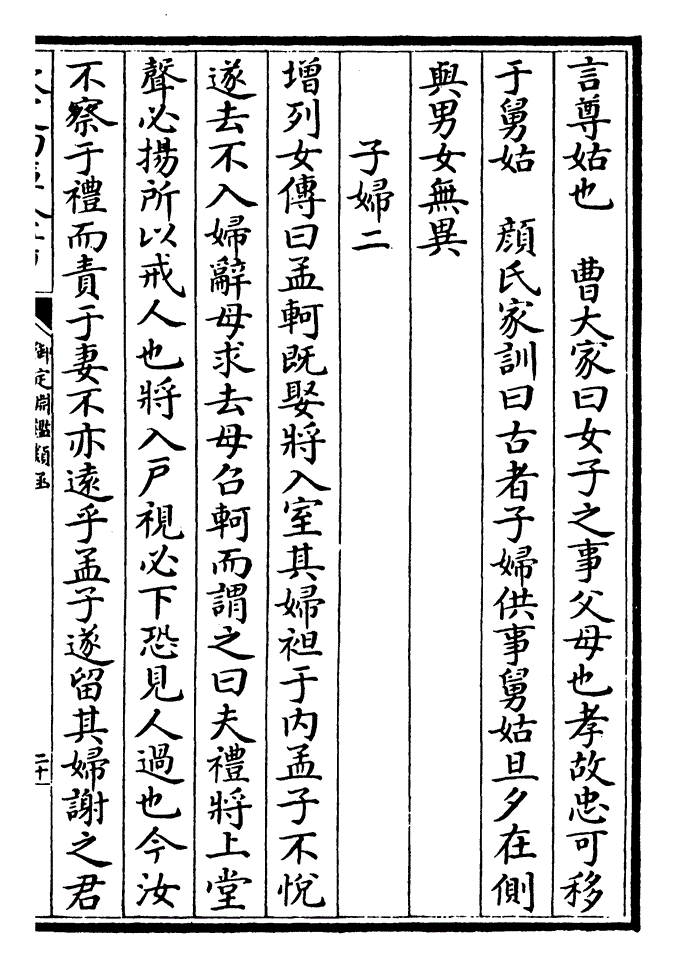 言尊姑也　曹大家曰女子之事父母也孝故忠可移
于舅姑　顔氏家訓曰古者子婦供事舅姑旦夕在側
與男女無異
子婦二
增列女傳曰孟軻既娶將入室其婦袒于内孟子不悅
遂去不入婦辭母求去母召軻而謂之曰夫禮將上堂
聲必揚所以戒人也將入戶視必下恐見人過也今汝
不察于禮而責于妻不亦遠乎孟子遂留其婦謝之君
御定淵鑑類函
二十一